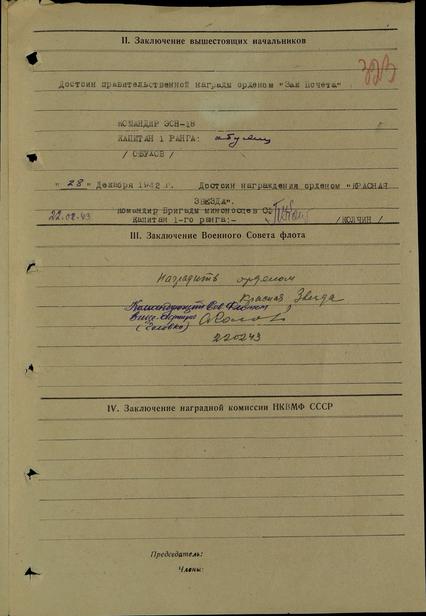 II. Заключение вышестоящих начальников
323
Достоин правительственной награды орденом "Знак Почета"
КОМАНДИР ЭОН-18
КАПИТАН 1 РАНГА:
/ ОБУХОВ /
"28" Декабря 1942 г. Достоин награждения орденом "КРАСНАЯ
ЗВЕЗДА".
Командир Бригады миноносцев С
22.02.43 Капитан 1-го ранга:- /КОЛЧИН/
III. Заключение Военного Совета флота
Наградить орденом
Красная Звезда
Командующий Сев Флотом
Вице-Адмирал
(Головко)
220243
IV. Заключение наградной комиссии НКВМФ СССР
Председатель:
Члены: